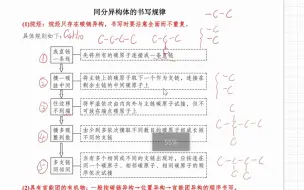 同分异构体的书写规律
(1)烷烃：烷烃只存在碳链异构，书写时要注意全面而不重复，
具体规则如下：C₆H₁₀
C-C-C-C
-C-C
成直链
一条线
先将所有的碳原子连接成一条直链
摘一碳
挂中间
将主链上的碳原子取下一个作为支链，连接在
剩余主链的中间碳原子上
往边移
不到端
将甲基依次由内向外与主链碳原子试接，但不
可放在端点碳原子上
摘多碳
整到散
由少到多依次摘取不同数目的碳原子组成长短
不同的支链
多支链
同邻间
当有多个相同或不同的支链出现时，应按连在
同一个碳原子、相邻碳原子、相间碳原子的顺
序依次试接
(2)具有官能团的有机物：一般按碳链异构→位置异构→官能团异构的顺序书写。